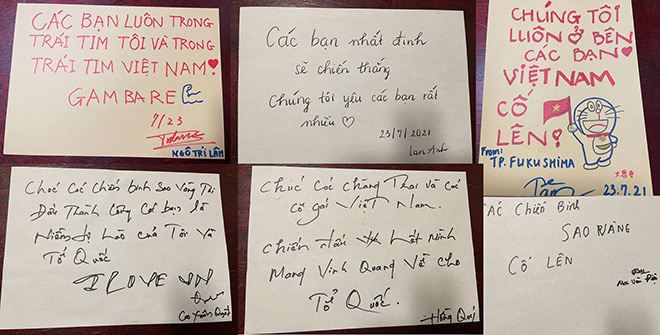 CÁC BẠN LUÔN TRONG
TRÁI TIM TÔI VÀ TRONG
TRÁI TIM VIỆT NAM!
GAMBARE
7/23
NGÔ TRÍ LÂM
Các bạn nhất định
sẽ chiến thắng
Chúng tôi yêu các bạn rất
nhiều
23/7/2021
Lan Anh
CHÚNG TÔI
LUÔN Ở BÊN
CÁC BẠN
VIỆT NAM
CỐ
LÊN!
From:
TP. FUKUSHIMA
23.7.21
Chúc Các Chiến binh Sao Vàng Thi
Đấu Thành Công Các bạn là
Niềm tự hào của Tôi Và
Tổ Quốc
I LOVE VN
Chúc Các chàng Trai và Các
cô gái Việt Nam.
Chiến đấu hết mình
Mang Vinh Quang Về cho
Tổ Quốc.
Hồng Quý
CÁC CHIẾN BINH
SAO VÀNG
CỐ LÊN